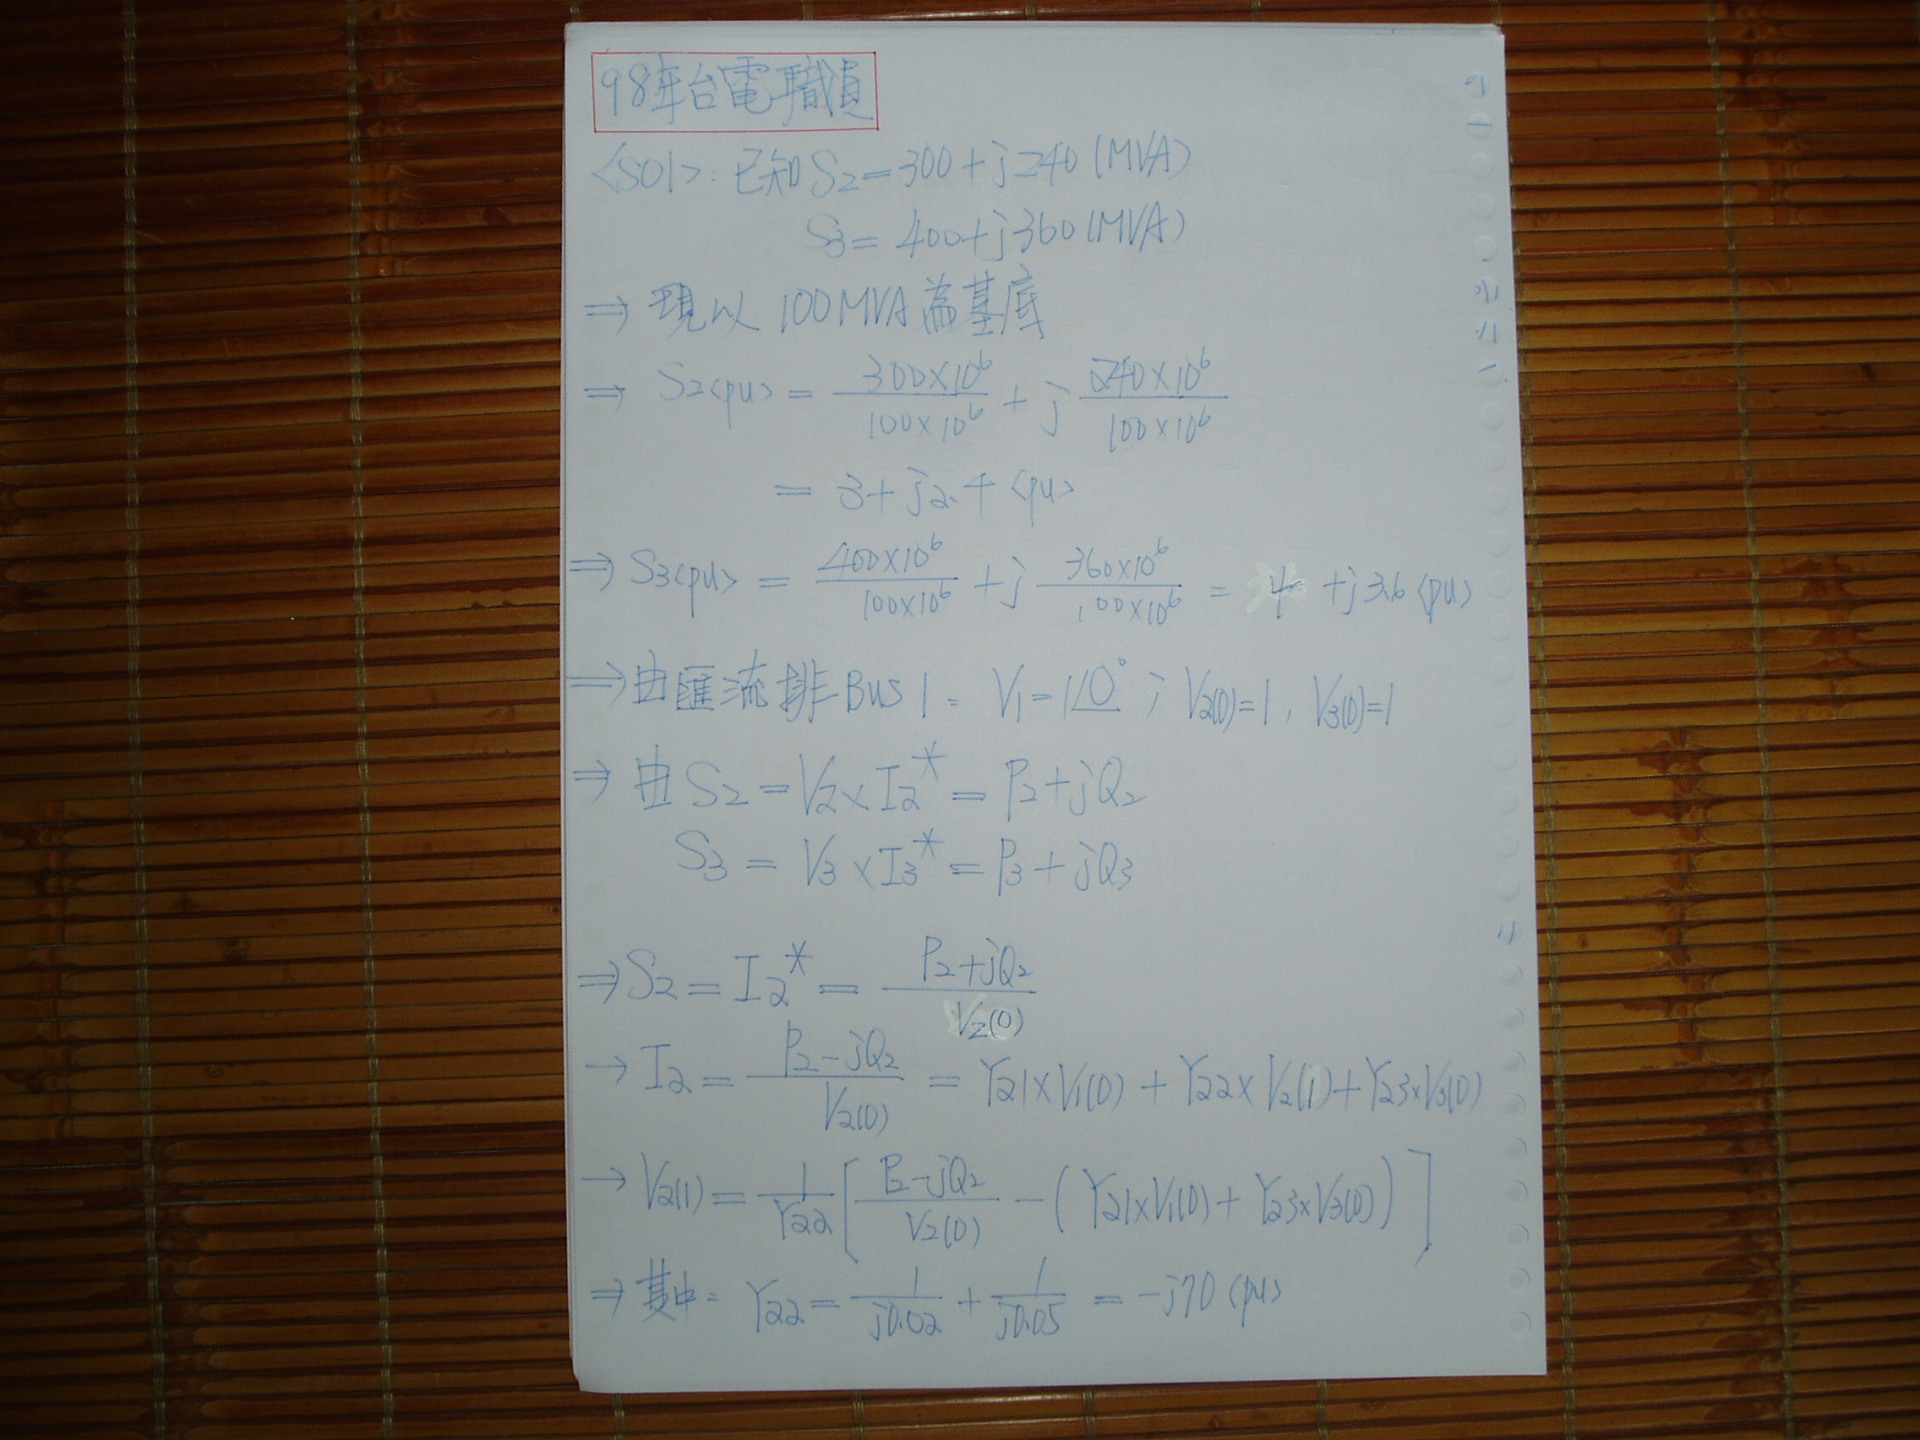 98年台電職員
<SOl>: 已知 S2 = 300 + j240 (MVA)
S3 = 400 + j360 (MVA)
⇒ 現以 100MVA 為基底
⇒ S2<pu> = 300×10^6 / 100×10^6 + j 240×10^6 / 100×10^6
= 3 + j2.4 <pu>
⇒ S3<pu> = 400×10^6 / 100×10^6 + j 360×10^6 / 100×10^6 = 4 + j3.6 <pu>
⇒ 由匯流排 Bus 1 = V1 = 1∠0° ; V2(0)=1, V3(0)=1
⇒ 由 S2 = V2 × I2* = P2 + jQ2
S3 = V3 × I3* = P3 + jQ3
⇒ S2 = I2* = P2 + jQ2 / V2(0)
→ I2 = P2 - jQ2 / V2(0) = Y21 × V1(0) + Y22 × V2(1) + Y23 × V3(0)
→ V2(1) = 1 / Y22 [ P2 - jQ2 / V2(0) - ( Y21 × V1(0) + Y23 × V3(0) ) ]
⇒ 其中 = Y22 = 1 / j0.02 + 1 / j0.05 = -j70 <pu>